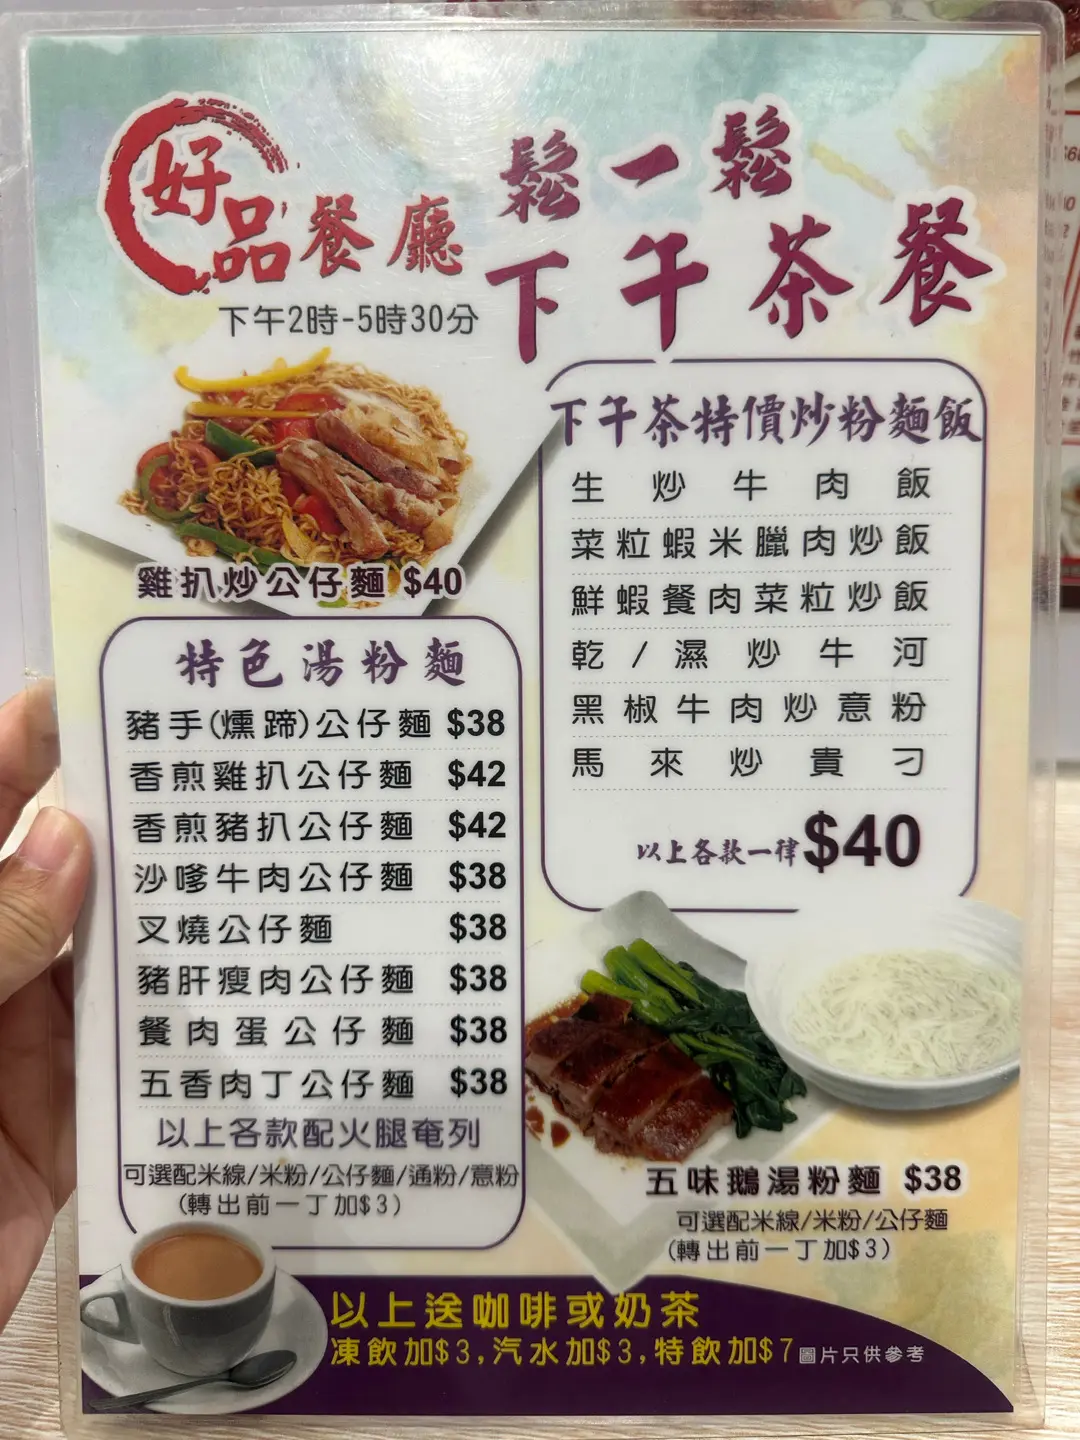 好品餐廳
下午2時-5時30分
鬆一鬆
下午茶餐
雞扒炒公仔麵 $40
特色湯粉麵
豬手(燻蹄)公仔麵 $38
香煎雞扒公仔麵 $42
香煎豬扒公仔麵 $42
沙嗲牛肉公仔麵 $38
叉燒公仔麵 $38
豬肝瘦肉公仔麵 $38
餐肉蛋公仔麵 $38
五香肉丁公仔麵 $38
以上各款配火腿奄列
可選配米線/米粉/公仔麵/通粉/意粉
(轉出前一丁加$3)
下午茶特價炒粉麵飯
生炒牛肉飯
菜粒蝦米臘肉炒飯
鮮蝦餐肉菜粒炒飯
乾/濕炒牛河
黑椒牛肉炒意粉
馬來炒貴刁
以上各款一律$40
五味鵝湯粉麵 $38
可選配米線/米粉/公仔麵
(轉出前一丁加$3)
以上送咖啡或奶茶
凍飲加$3,汽水加$3,特飲加$7圖片只供參考